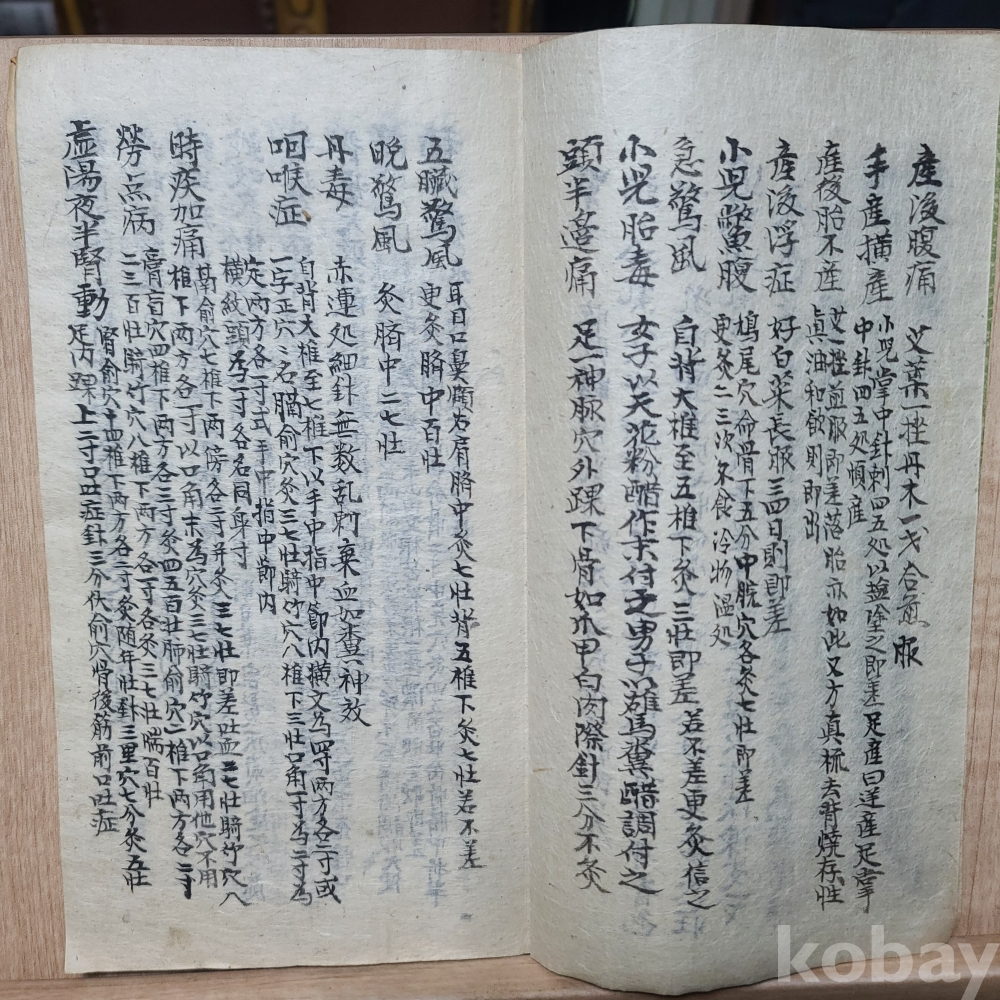 産後腹痛 艾葉一挫丹木一戔合煎服
手産橫産 小児掌中針刺四五処以塩塗之即差足産曰逆産足掌
中針四五処順産
産後胎不産 艾一挫煎服即差落胎亦如此又方真梳去背燒存性
眞油和飮則即出
産後浮症 好白菜長服三四日則即差
小児鱉腹 鳩尾穴命骨下五分中脘穴各灸七壯即差
更灸二三次勿食冷物温処
急驚風 自背大椎至五椎下灸三壯即差若不差更灸信之
小児胎毒 女子以天花粉醋作末付之男子以雄馬糞醋調付之
頭半邉痛 足一神脉穴外踝下骨如爪甲白肉際針三分不灸
五臟驚風 耳目口鼻額右肩臍中灸七壯背五椎下灸七壯若不差
更灸臍中百壯
晩驚風 灸臍中二七壯
丹毒 赤連処細針無数乱刺棄血如糞神效
咽喉症 自背大椎至七椎下以手中指中節內橫文為寸両方各一寸或
一字正穴名膈俞穴灸三七壯騎竹穴八椎下三壯口角一寸為二寸為
定両方各一寸式手中指中節內
橫紋頭為一寸各名同身寸
時疾加痛 肺俞穴七椎下両傍各二寸并灸三七壯即差吐血二七壯騎竹穴八
椎下両方各一寸以口角末為穴灸三七壯騎竹穴以口角用他穴不用
勞点病 膏肓穴四椎下両方各三寸灸四五百壯肺俞穴二椎下両方各二寸
二三百壯騎竹穴八椎下両方各一寸各灸三七壯臍百壯
虛湯夜半腎動 腎俞穴十四椎下両方各二寸灸随年壯針三里穴七分灸五壯
足內踝上二寸口吐症針三分伏俞穴骨後筋前口吐症
kobay